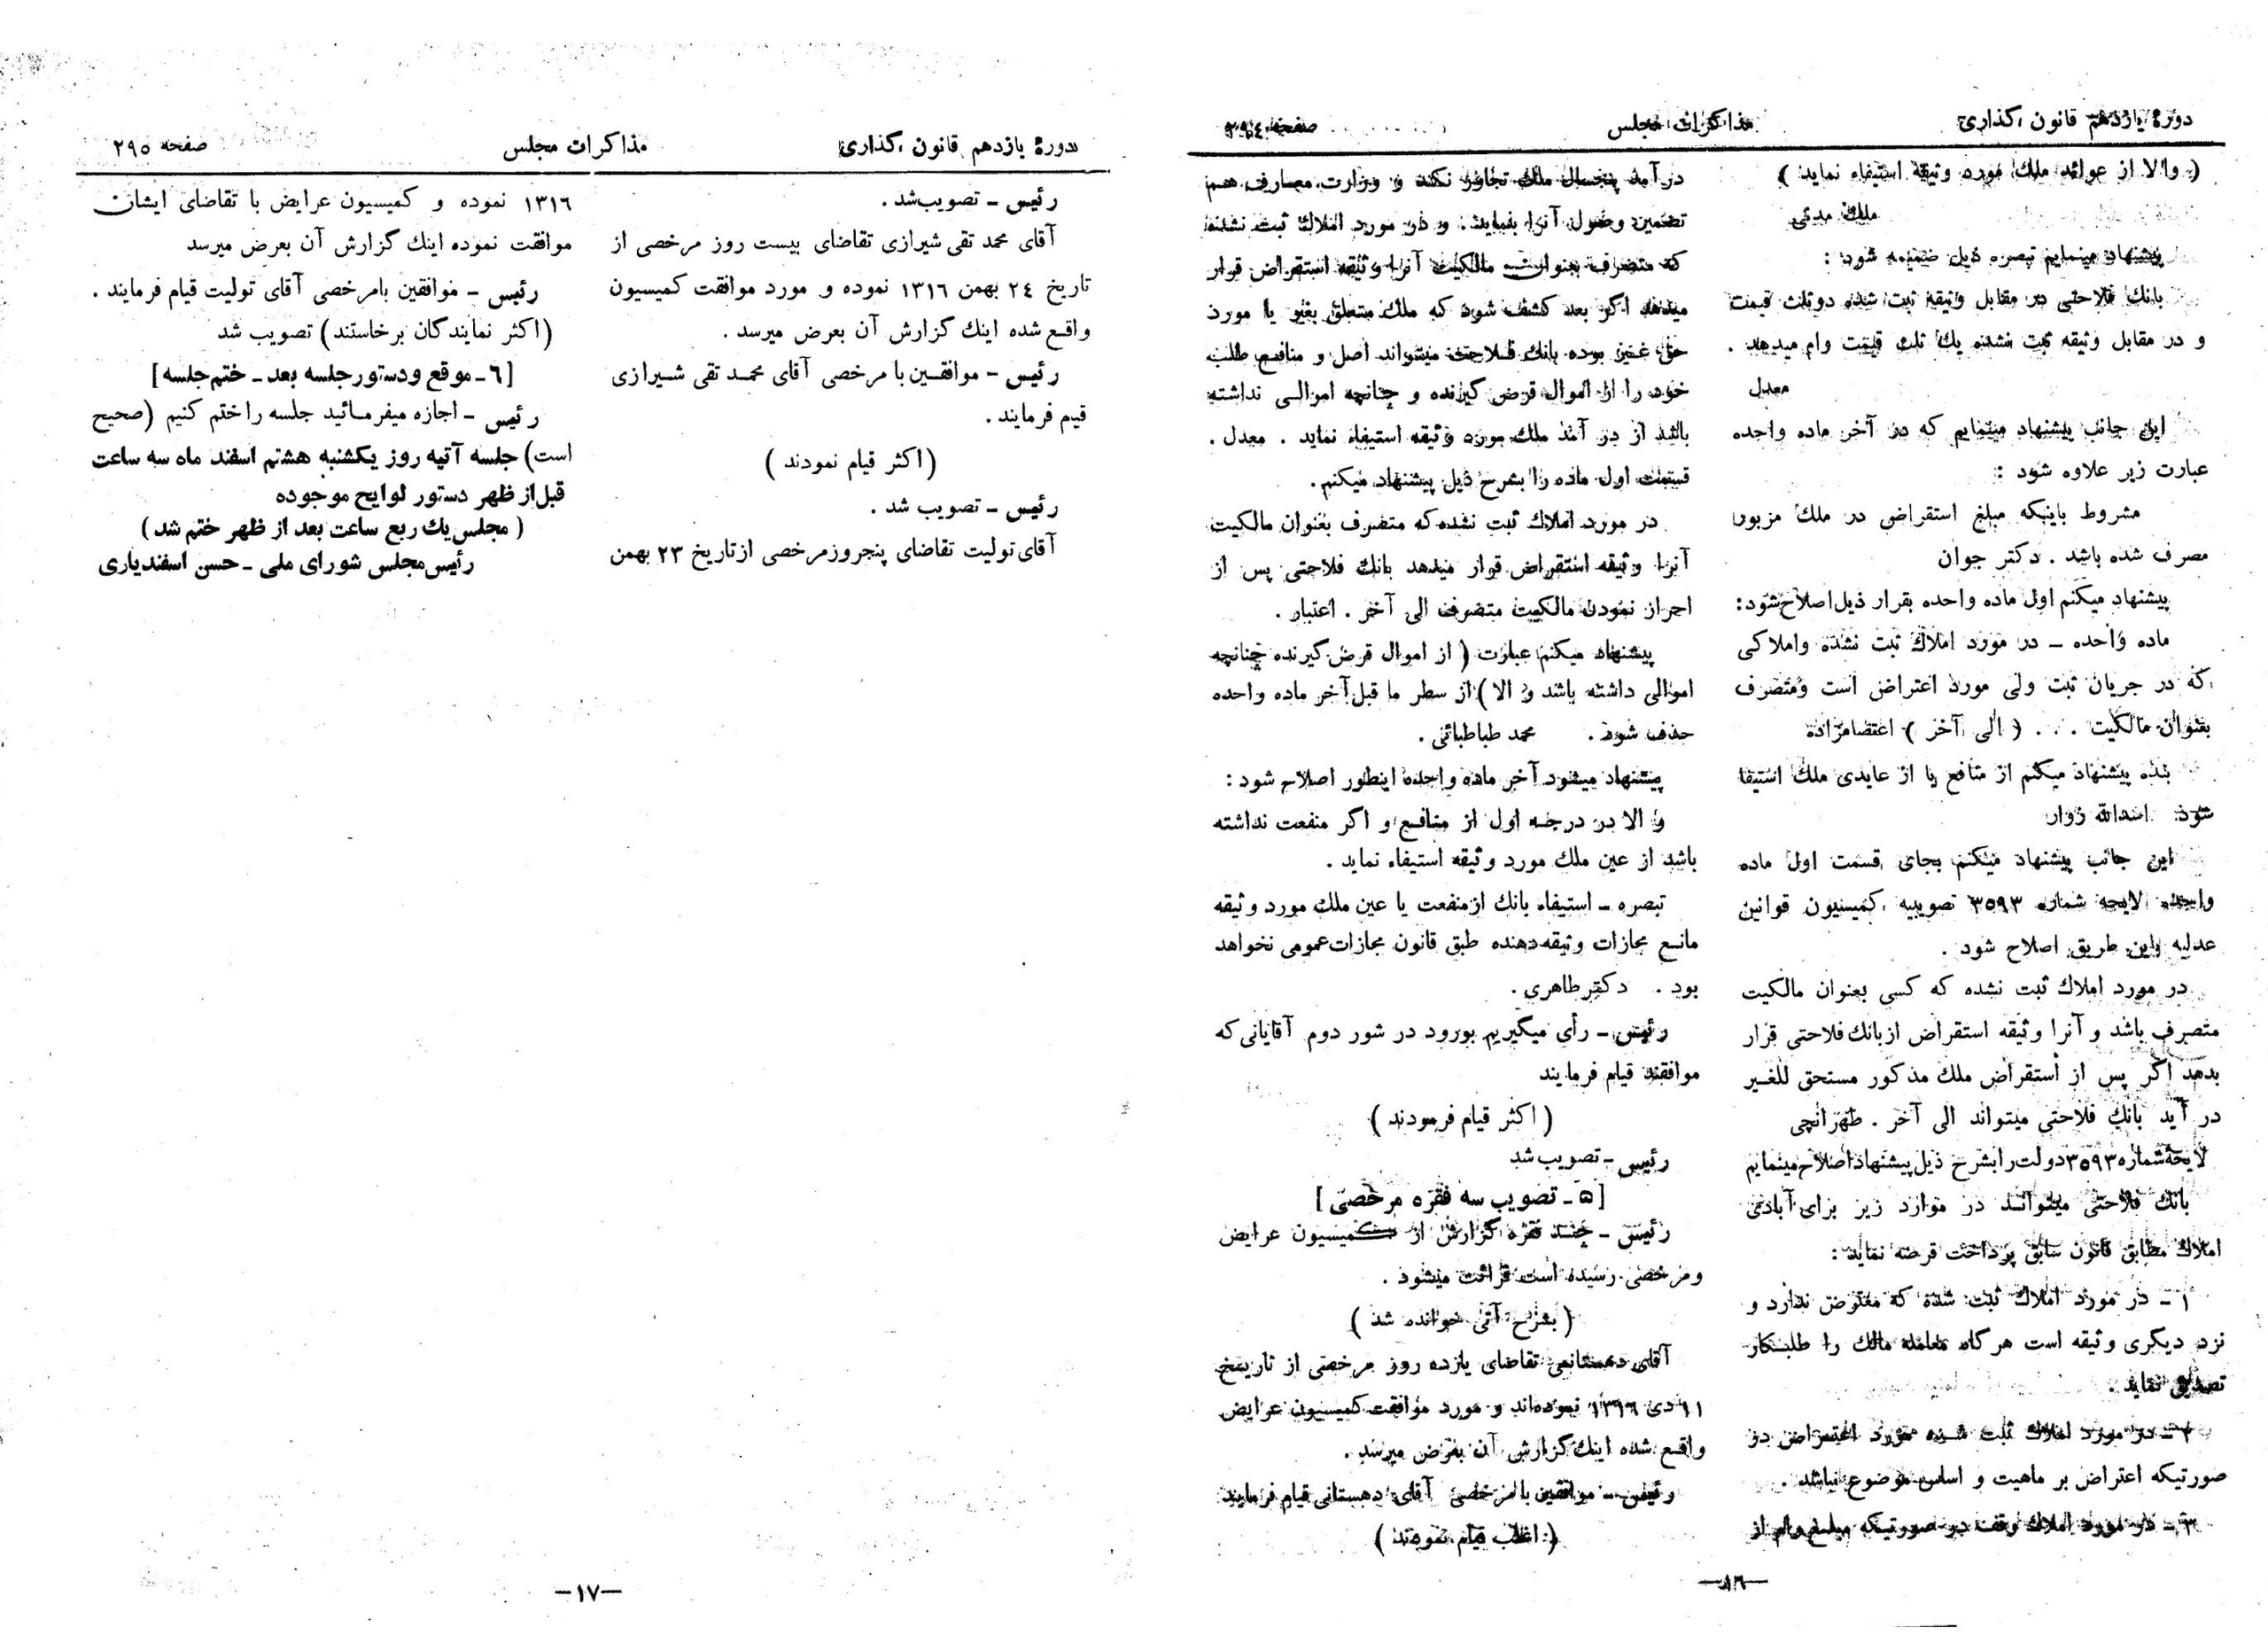 دورهٔ یازدهم قانون گذاری
مذاکرات مجلس
صفحه ۲۹٤
( والا از عوائد ملك مورد وثیقه استیفاء نماید )
ملك مدنی
پیشنهاد مینمایم تبصره ذیل ضمیمه شود :
بانك فلاحتی در مقابل وثیقه ثبت شده دوثلث قیمت
و در مقابل وثیقه ثبت نشده یك ثلث قیمت وام میدهد .
معدل
این جانب پیشنهاد مینمایم که در آخر ماده واحده
عبارت زیر علاوه شود :
مشروط باینکه مبلغ استقراضی در ملك مزبور
مصرف شده باشد . دکتر جوان
پیشنهاد میکنم اول ماده واحده بقرار ذیل اصلاح شود :
ماده واحده ــ در مورد املاك ثبت نشده واملاکی
که در جریان ثبت ولی مورد اعتراض است ومتصرف
بعنوان مالکیت . . . ( الی آخر ) اعتصامزاده
بنده پیشنهاد میکنم از منافع یا از عایدی ملك استیفا
شود اسدالله زوار
این جانب پیشنهاد میکنم بجای قسمت اول ماده
واحده لایحه شماره ۳۵۹۳ تصویبیه کمیسیون قوانین
عدلیه باین طریق اصلاح شود .
در مورد املاك ثبت نشده که کسی بعنوان مالکیت
متصرف باشد و آنرا وثیقه استقراض از بانك فلاحتی قرار
بدهد اگر پس از استقراض ملك مذکور مستحق للغیر
در آید بانك فلاحتی میتواند الی آخر . طهرانچی
لایحهٔ شماره ۳۵۹۳ دولت را بشرح ذیل پیشنهاد اصلاح مینمایم
بانك فلاحتی میتواند در موارد زیر برای آبادی
املاك مطابق قانون سابق پرداخت قرضه نماید :
۱ ـ در مورد املاك ثبت شده که معترض ندارد و
نزد دیگری وثیقه است هرگاه معامله مالك را طلبکار
تصدیق نماید .
۲ ـ در مورد املاك ثبت شده مورد اعتراض در
صورتیکه اعتراض بر ماهیت و اساس موضوع نباشد .
۳ ـ در مورد املاك وقف در صورتیکه مبلغ وام از
در آمد پنجسال ملك تجاوز نکند و وزارت معارف هم
تضمین وصول آنرا بنماید . و در مورد املاك ثبت نشده
که متصرف بعنوان مالکیت آنرا وثیقه استقراض قرار
میدهد اگر بعد کشف شود که ملك متعلق بغیر یا مورد
حق غیر بوده بانك فلاحتی میتواند اصل و منافع طلب
خود را از اموال قرض گیرنده و چنانچه اموالی نداشته
باشد از در آمد ملك مورد وثیقه استیفاء نماید . معدل .
قسمت اول ماده را بشرح ذیل پیشنهاد میکنم .
در مورد املاك ثبت نشده که متصرف بعنوان مالکیت
آنرا وثیقه استقراض قرار میدهد بانك فلاحتی پس از
احراز نمودن مالکیت متصرف الی آخر . اعتبار .
پیشنهاد میکنم عبارت ( از اموال قرض گیرنده چنانچه
اموالی داشته باشد و الا ) از سطر ما قبل آخر ماده واحده
حذف شود . محمد طباطبائی .
پیشنهاد میشود آخر ماده واحده اینطور اصلاح شود :
و الا در درجه اول از منافع و اگر منفعت نداشته
باشد از عین ملك مورد وثیقه استیفاء نماید .
تبصره ــ استیفاء بانك از منفعت یا عین ملك مورد وثیقه
مانع مجازات وثیقه دهنده طبق قانون مجازات عمومی نخواهد
بود . دکتر طاهری .
رئیس ــ رأی میگیریم بورود در شور دوم آقایانی که
موافقند قیام فرمایند
( اکثر قیام فرمودند )
رئیس ــ تصویب شد
[ ۵ ــ تصویب سه فقره مرخصی ]
رئیس ــ چند فقره گزارش از کمیسیون عرایض
ومرخصی رسیده است قرائت میشود .
( بشرح آتی خوانده شد )
آقای دهستانی تقاضای یازده روز مرخصی از تاریخ
۱۱ دی ۱۳۱٦ نموده‌اند و مورد موافقت کمیسیون عرایض
واقع شده اینك گزارش آن بعرض میرسد .
رئیس ــ موافقین بامرخصی آقای دهستانی قیام فرمایند
( اغلب قیام نمودند )
—۱٦—
دورهٔ یازدهم قانون گذاری
مذاکرات مجلس
صفحه ۲۹۵
رئیس ــ تصویب شد .
آقای محمد تقی شیرازی تقاضای بیست روز مرخصی از
تاریخ ۲٤ بهمن ۱۳۱٦ نموده و مورد موافقت کمیسیون
واقع شده اینك گزارش آن بعرض میرسد .
رئیس ــ موافقین با مرخصی آقای محمد تقی شیرازی
قیام فرمایند .
( اکثر قیام نمودند )
رئیس ــ تصویب شد .
آقای تولیت تقاضای پنجروز مرخصی از تاریخ ۲۳ بهمن
۱۳۱٦ نموده و کمیسیون عرایض با تقاضای ایشان
موافقت نموده اینك گزارش آن بعرض میرسد
رئیس ــ موافقین بامرخصی آقای تولیت قیام فرمایند .
( اکثر نمایندگان برخاستند ) تصویب شد
[ ٦ ــ موقع و دستور جلسه بعد ــ ختم جلسه ]
رئیس ــ اجازه میفرمائید جلسه را ختم کنیم (صحیح
است) جلسه آتیه روز یکشنبه هشتم اسفند ماه سه ساعت
قبل از ظهر دستور لوایح موجوده
( مجلس یك ربع ساعت بعد از ظهر ختم شد )
رئیس مجلس شورای ملی ــ حسن اسفندیاری
—۱۷—